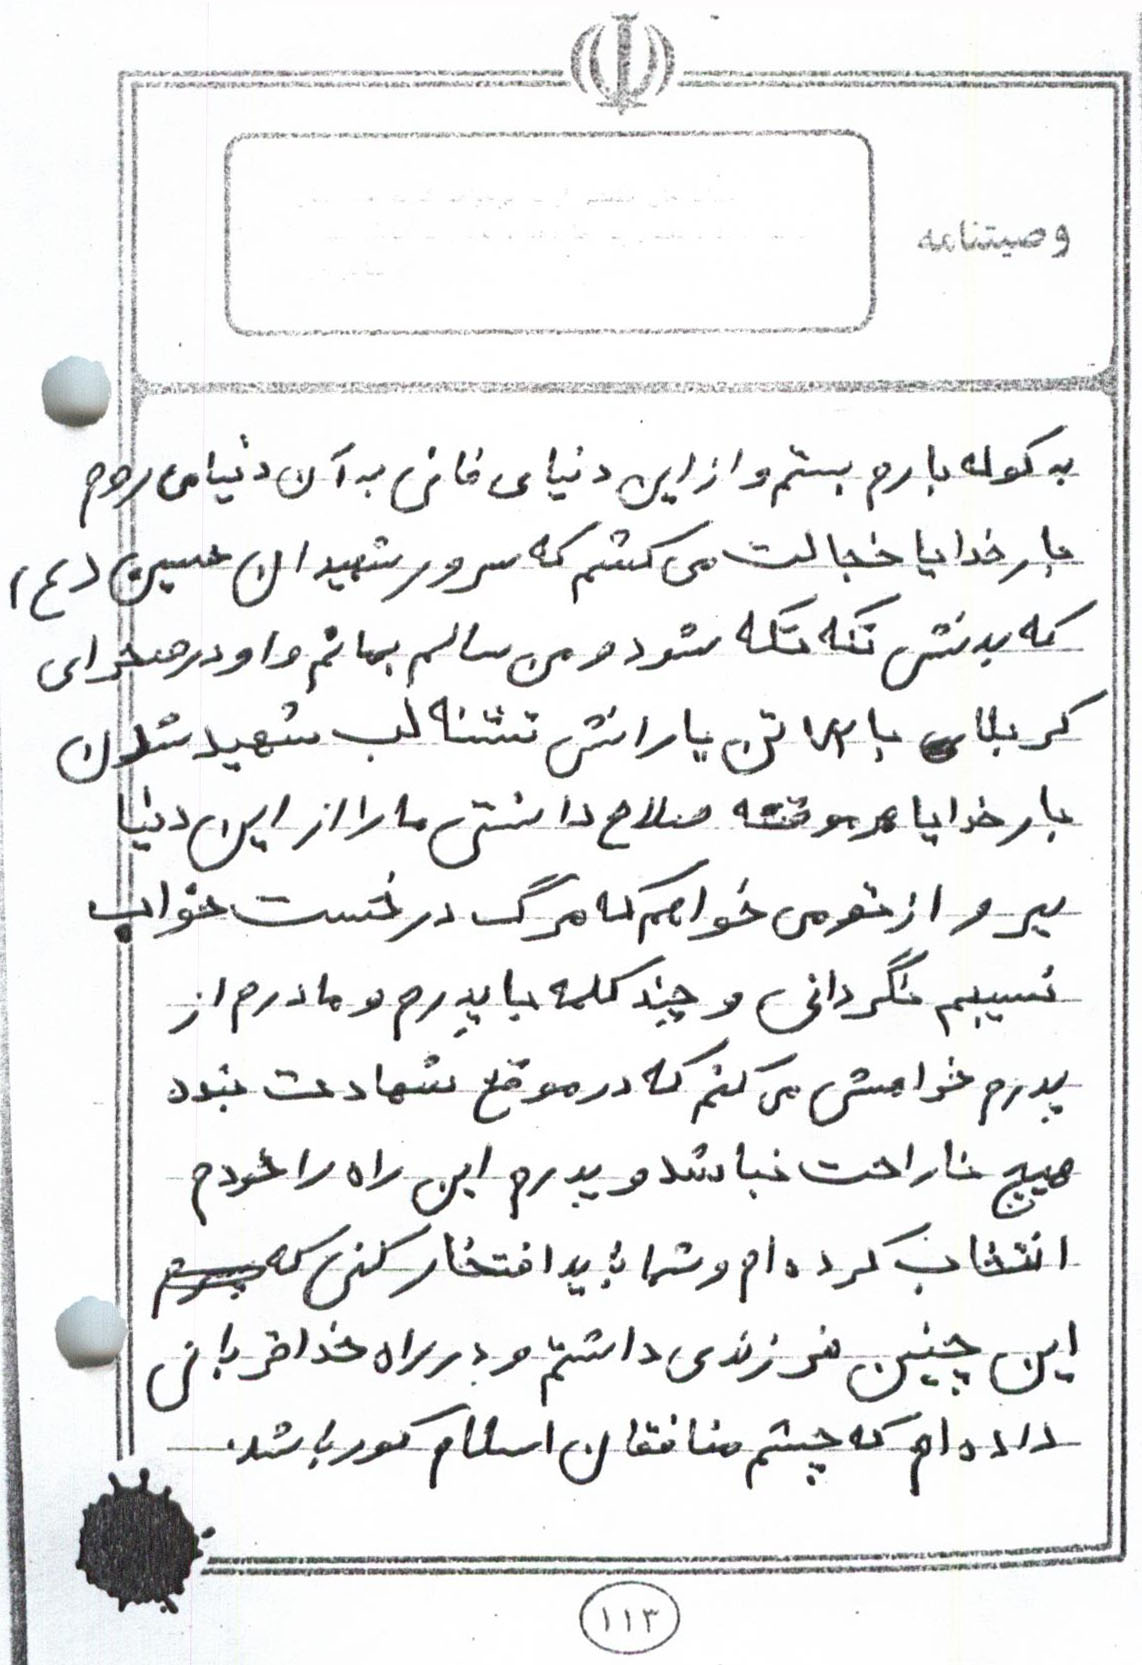 وصیتنامه
به کوله بارم بستم و از این دنیای فانی به آن دنیا می روم
بار خدایا خجالت می کشم که سرور شهیدان حسین (ع)
که بدنش تکه تکه شود و من سالم بمانم و او در صحرای
کربلای با ۷۲ تن یارانش تشنه لب شهید شدن
بار خدایا هر موقعه صلاح دانستی ما را از این دنیا
ببر و از تو می خواهم که مرگ در ختست خواب
نسیبم نگردانی و چند کلمه با پدرم و مادرم از
پدرم خواهش می کنم که در موقع شهادت بنده
هیچ ناراحت نباشد و پدرم این راه را خودم
انتخاب کرده ام و شما باید افتخار کنی که
این چنین فرزندی داشتم و در راه خدا قربانی
داده ام که چشم منافقان اسلام کور باشد.
۱۱۳